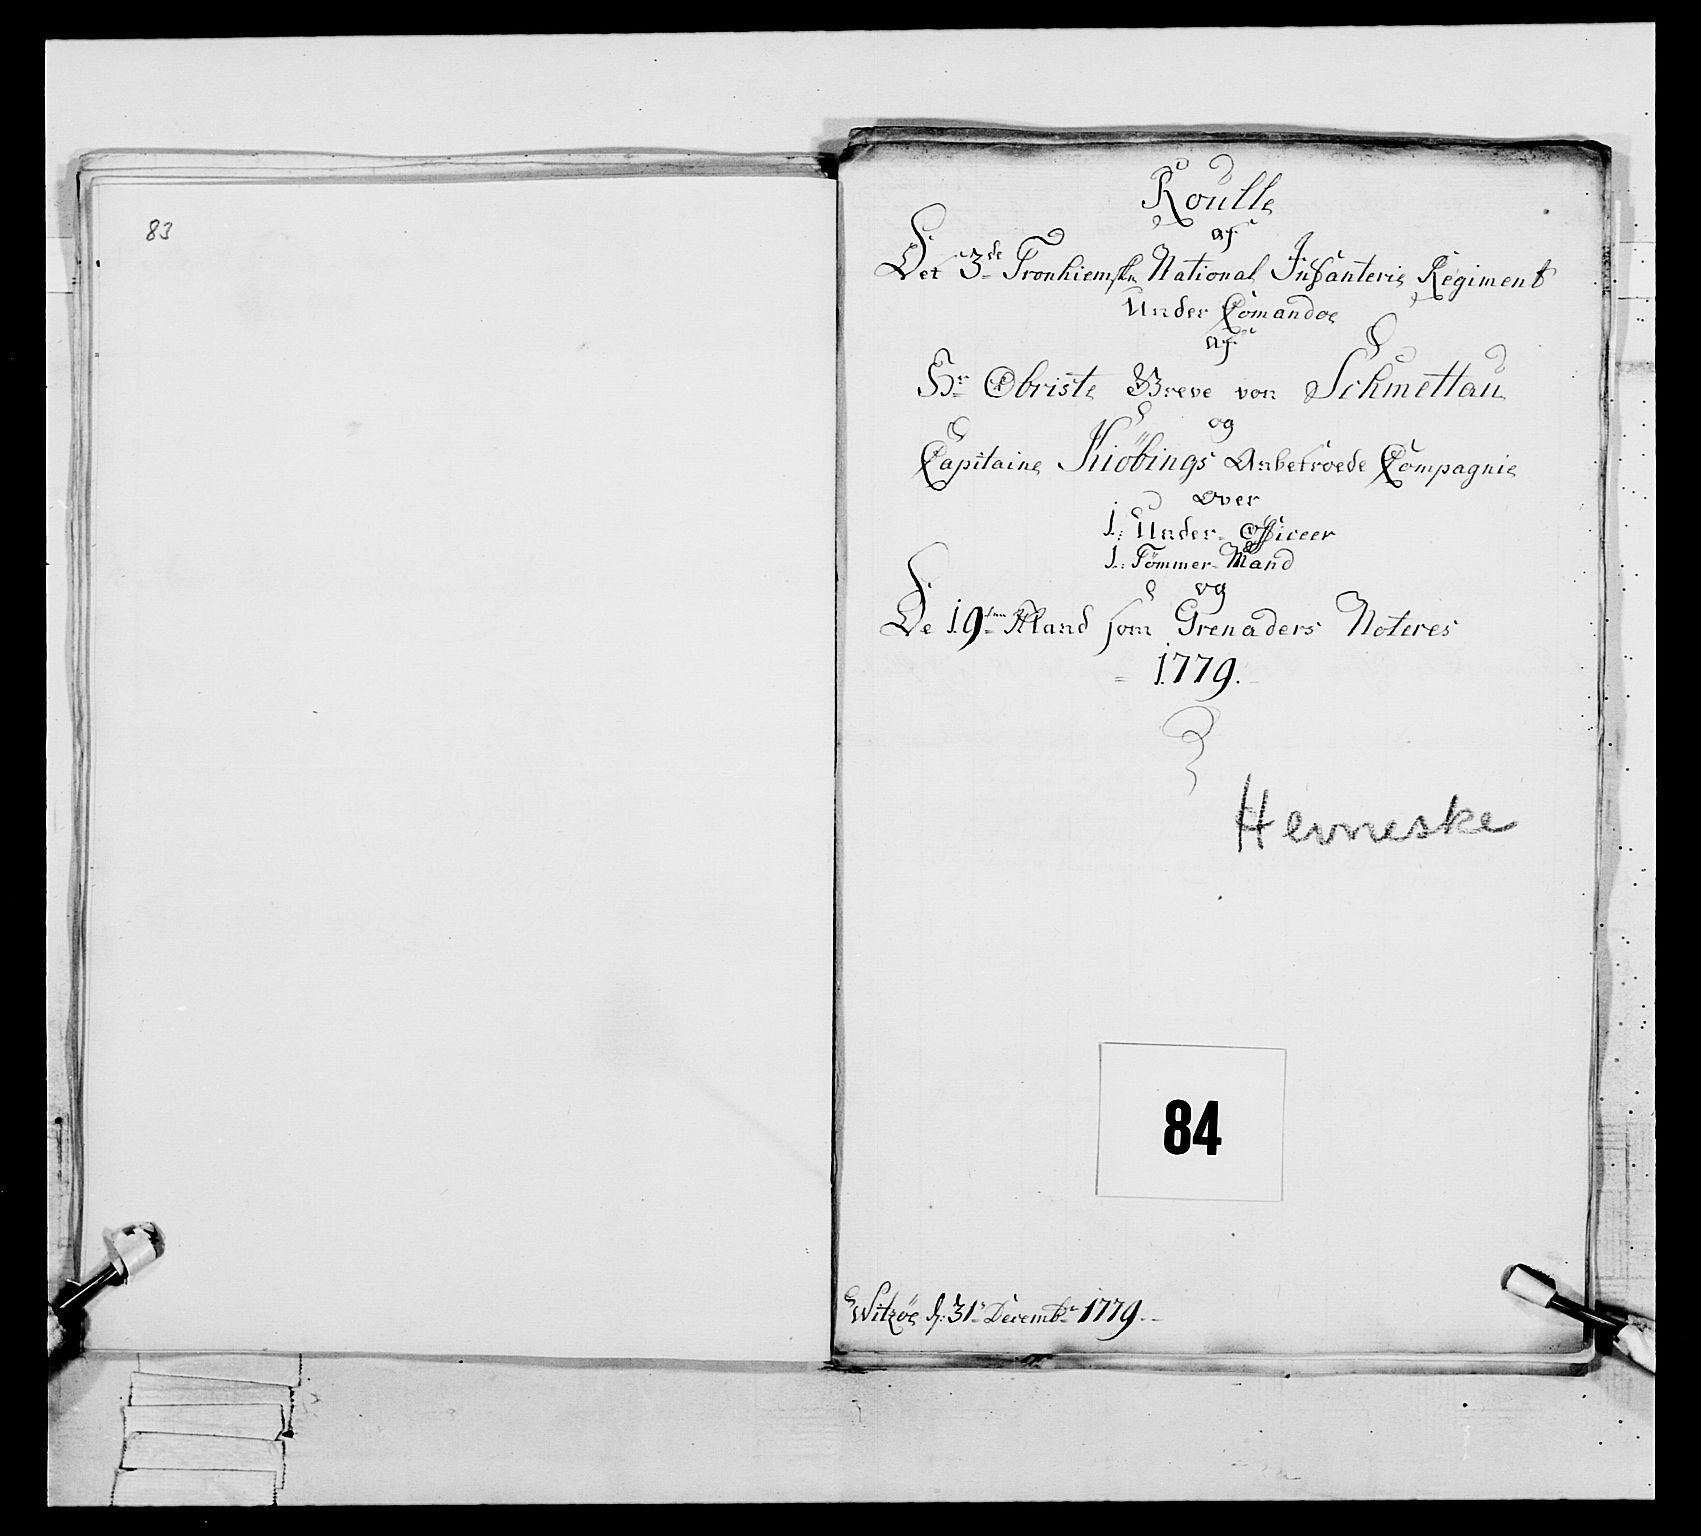 83
Roulle
af
Det 3de Tronhiemske National Infanterie Regiment
Under Comandoe
af
Hr Obriste Greve von Schmettau
og
Capitaine Kiöbings Anbetroede Compagnie
Over
1: Under Officeer
1: Tömmer Mand
og
De 19ten Mand som Grenaders Noteres
1779.
Hevneske
84
Witzöe d: 31t Decembr 1779.